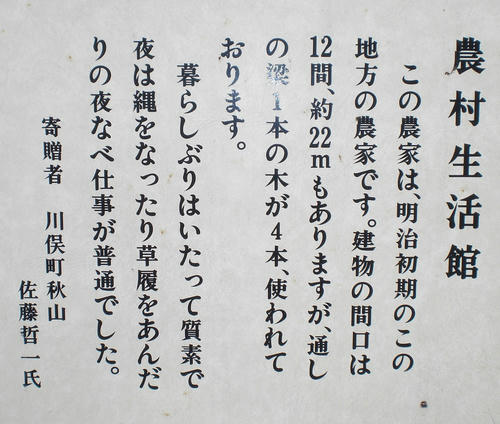 農村生活館
この農家は、明治初期のこの
地方の農家です。建物の間口は
12間、約22mもありますが、通し
の梁1本の木が4本、使われて
おります。
暮らしぶりはいたって質素で
夜は縄をなったり草履をあんだ
りの夜なべ仕事が普通でした。
寄贈者 川俣町秋山
佐藤哲一氏